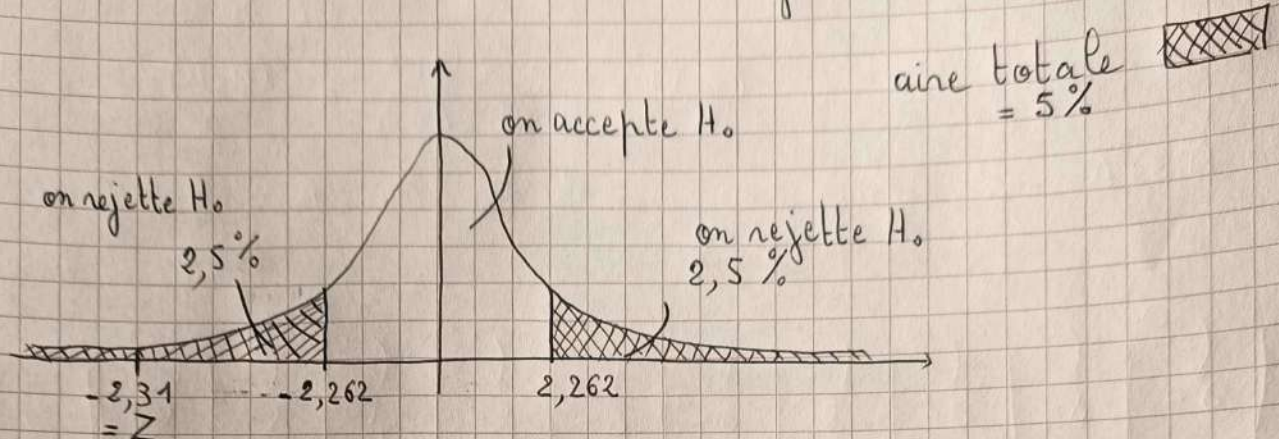 aire totale
= 5%
on accepte H₀
on rejette H₀
2,5%
on rejette H₀
2,5 %
-2,31
= Z
-2,262
2,262